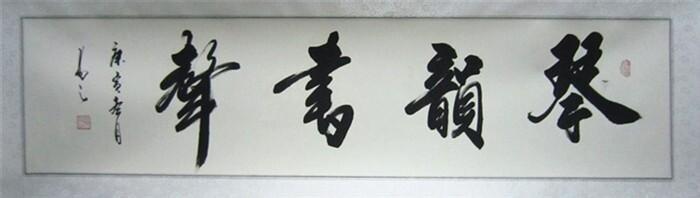 琴韻書聲
庚寅冬月